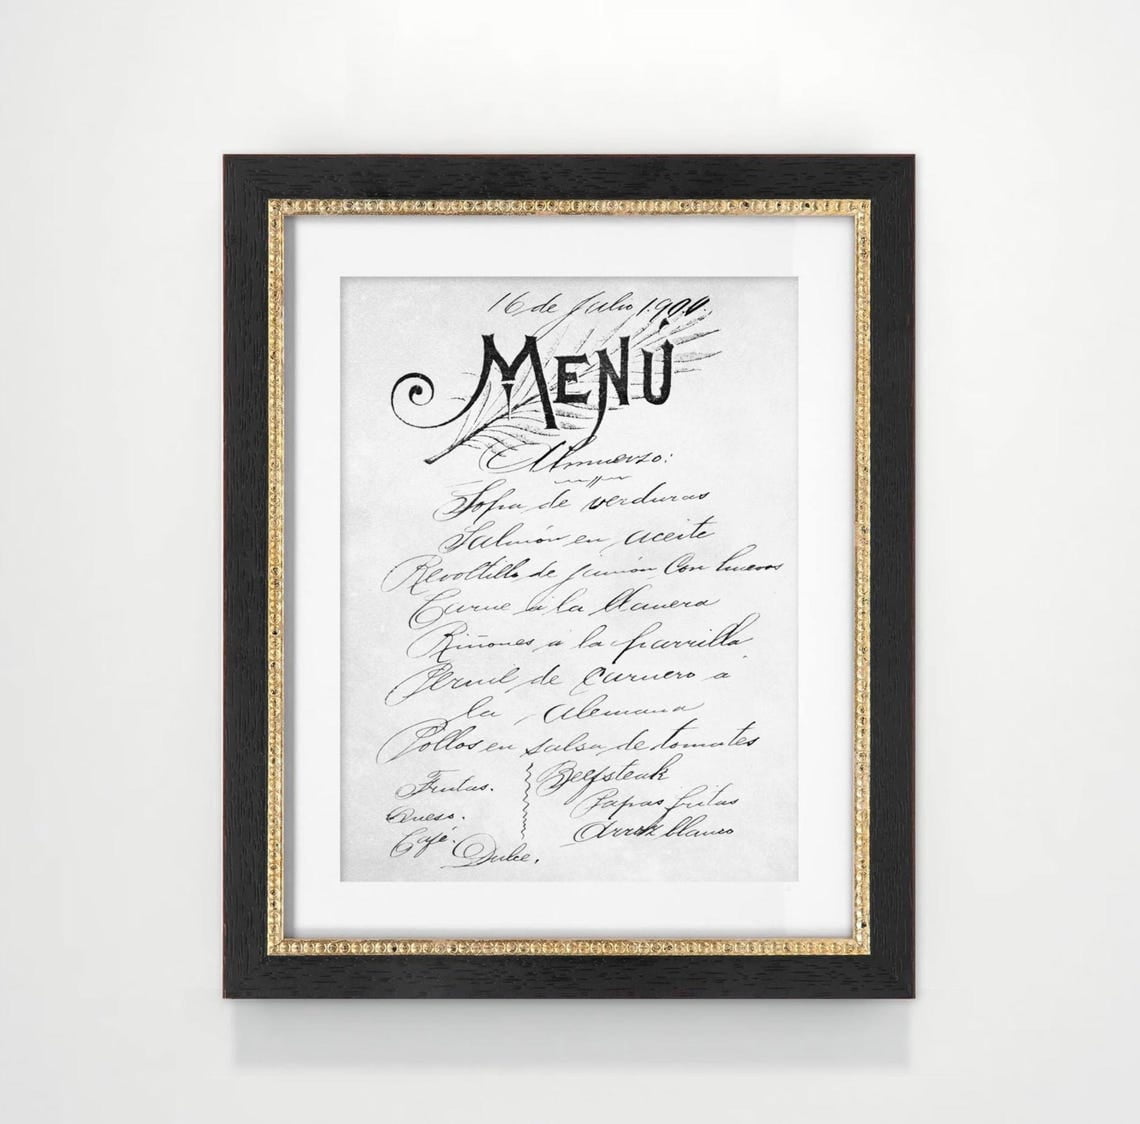 16 de Julio 1.900.
MENÚ
Almuerzo:
Sopa de verduras
Salmón en aceite
Revoltillo de jamón con huevos
Carne á la llanera
Riñones a la parrilla
Pernil de carnero a
la Alemana
Pollos en salsa de tomates
Frutas.
Queso.
Café.
Dulce.
Beefsteak
Papas fritas
Arroz blanco